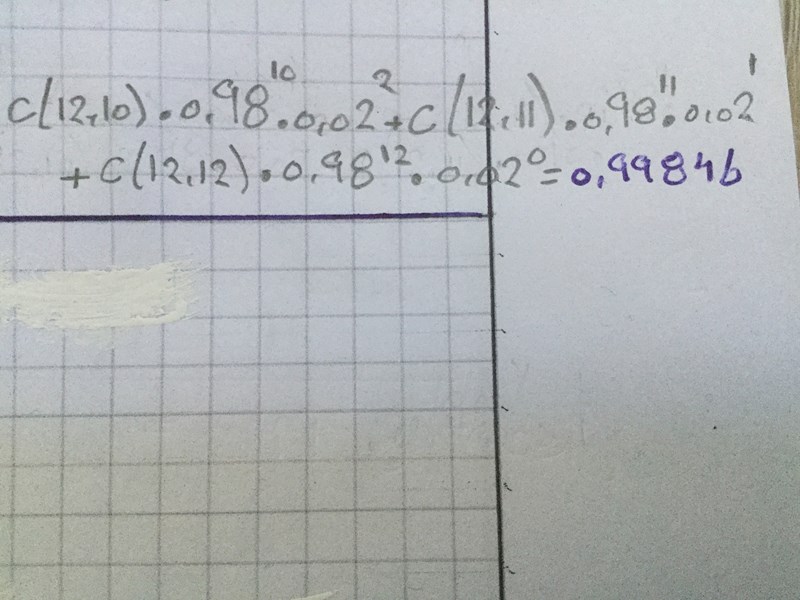 C(12,10)•0,98¹⁰•0,02²+C(12,11)•0,98¹¹•0,02¹
+C(12,12)•0,98¹²•0,02⁰=0,99846